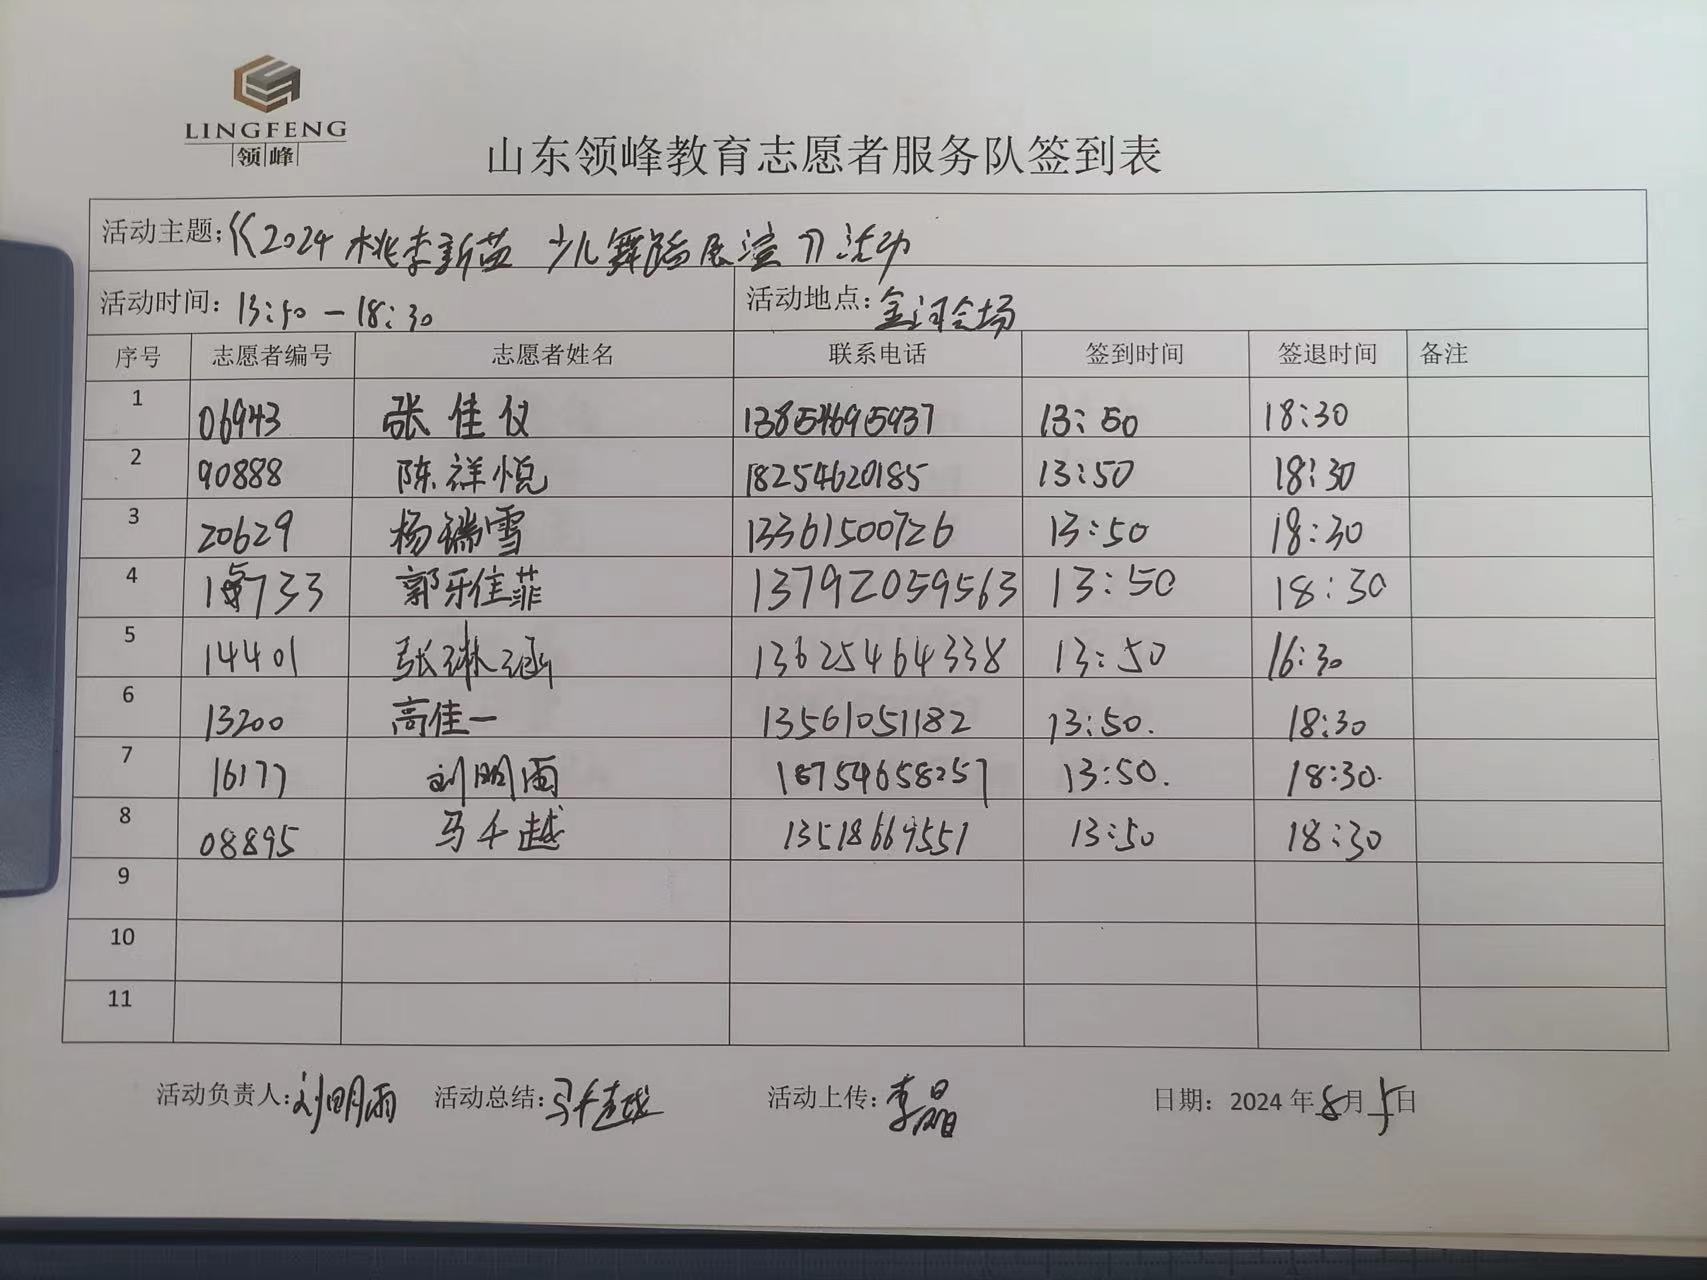 LINGFENG
领峰
山东领峰教育志愿者服务队签到表
活动主题:《2024桃李新蕊 少儿舞蹈展演》活动
活动时间: 13:50-18:30 活动地点: 金河会场
序号 志愿者编号 志愿者姓名 联系电话 签到时间 签退时间 备注
1 06943 张佳仪 13854695937 13:50 18:30
2 90888 陈祥悦 18254620185 13:50 18:30
3 20629 杨瑞雪 13361500726 13:50 18:30
4 15733 郭乐佳菲 13792059563 13:50 18:30
5 14401 张琳涵 13625464338 13:50 16:30
6 13200 高佳一 13561051182 13:50. 18:30
7 16177 刘明雨 18754658257 13:50. 18:30.
8 08895 马千越 13518669551 13:50 18:30
9
10
11
活动负责人:刘明雨 活动总结:马千越 活动上传:李晶 日期: 2024年8月5日